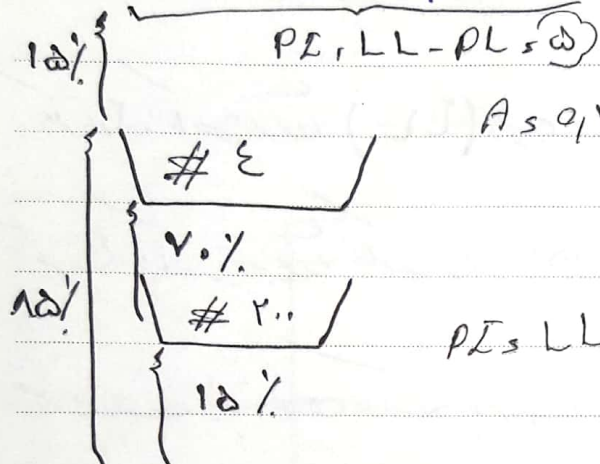 PI, LL - PL = ۵
۱۵٪
A = ۰,۷
# ٤
۷۰٪
۸۵٪
# ۲۰۰
PI = LL
۱۵٪